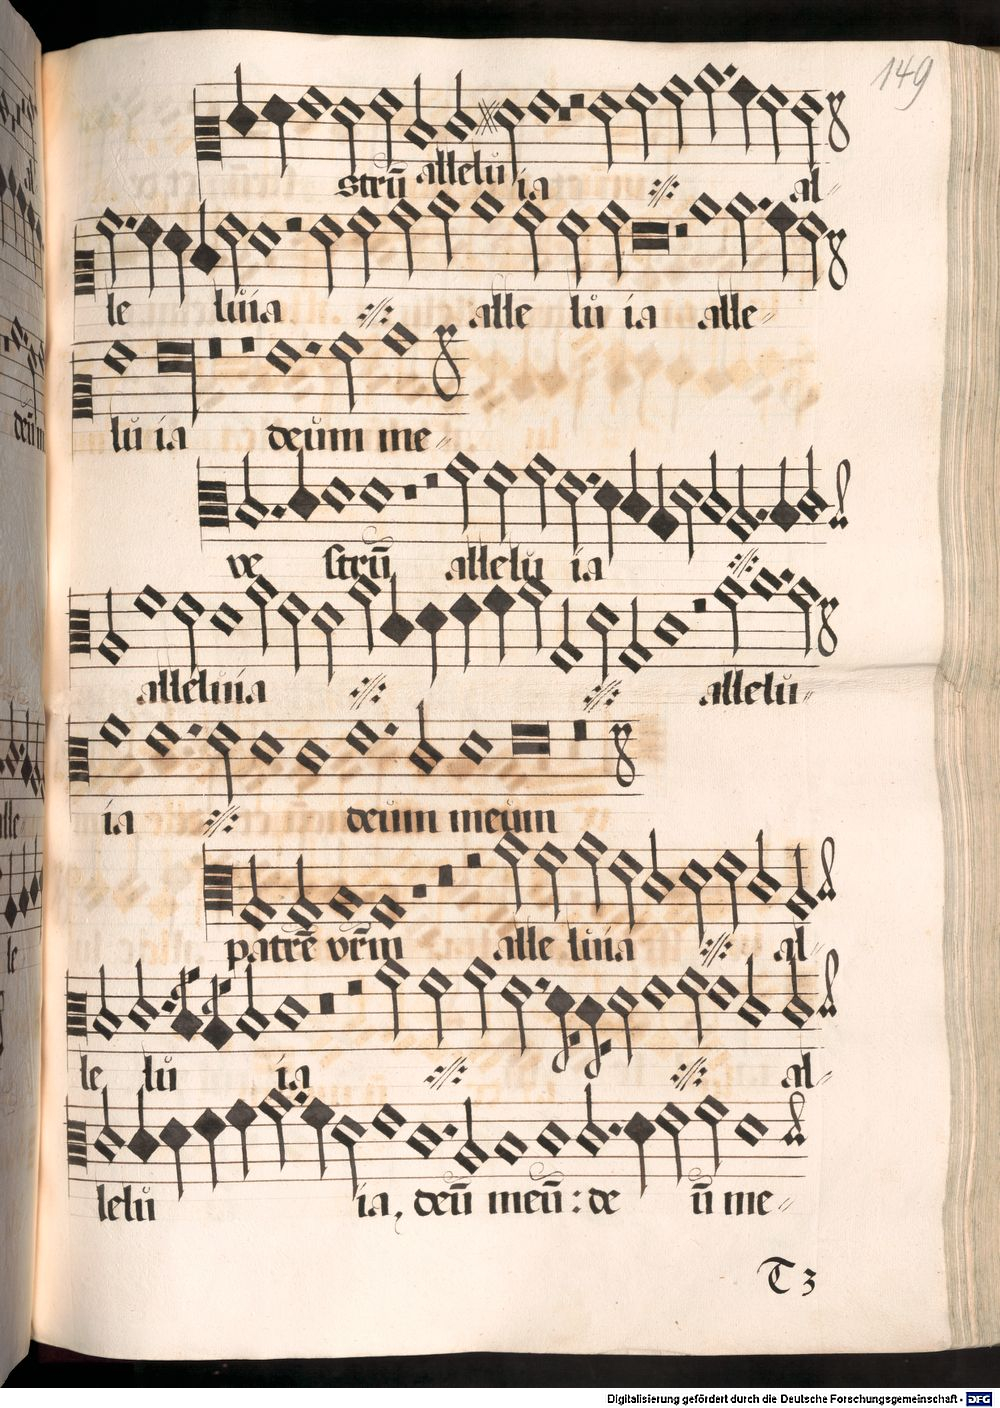 149
strū allelu ia al-
le luia alle lu ia alle-
lu ia deum me-
ve strū allelu ia
alleluia allelu-
ia deum meum
patrē vrm̄ alle luia al-
le lu ia al-
lelu ia, deū meū: de ū me-
T 3
Digitalisierung gefördert durch die Deutsche Forschungsgemeinschaft - DFG